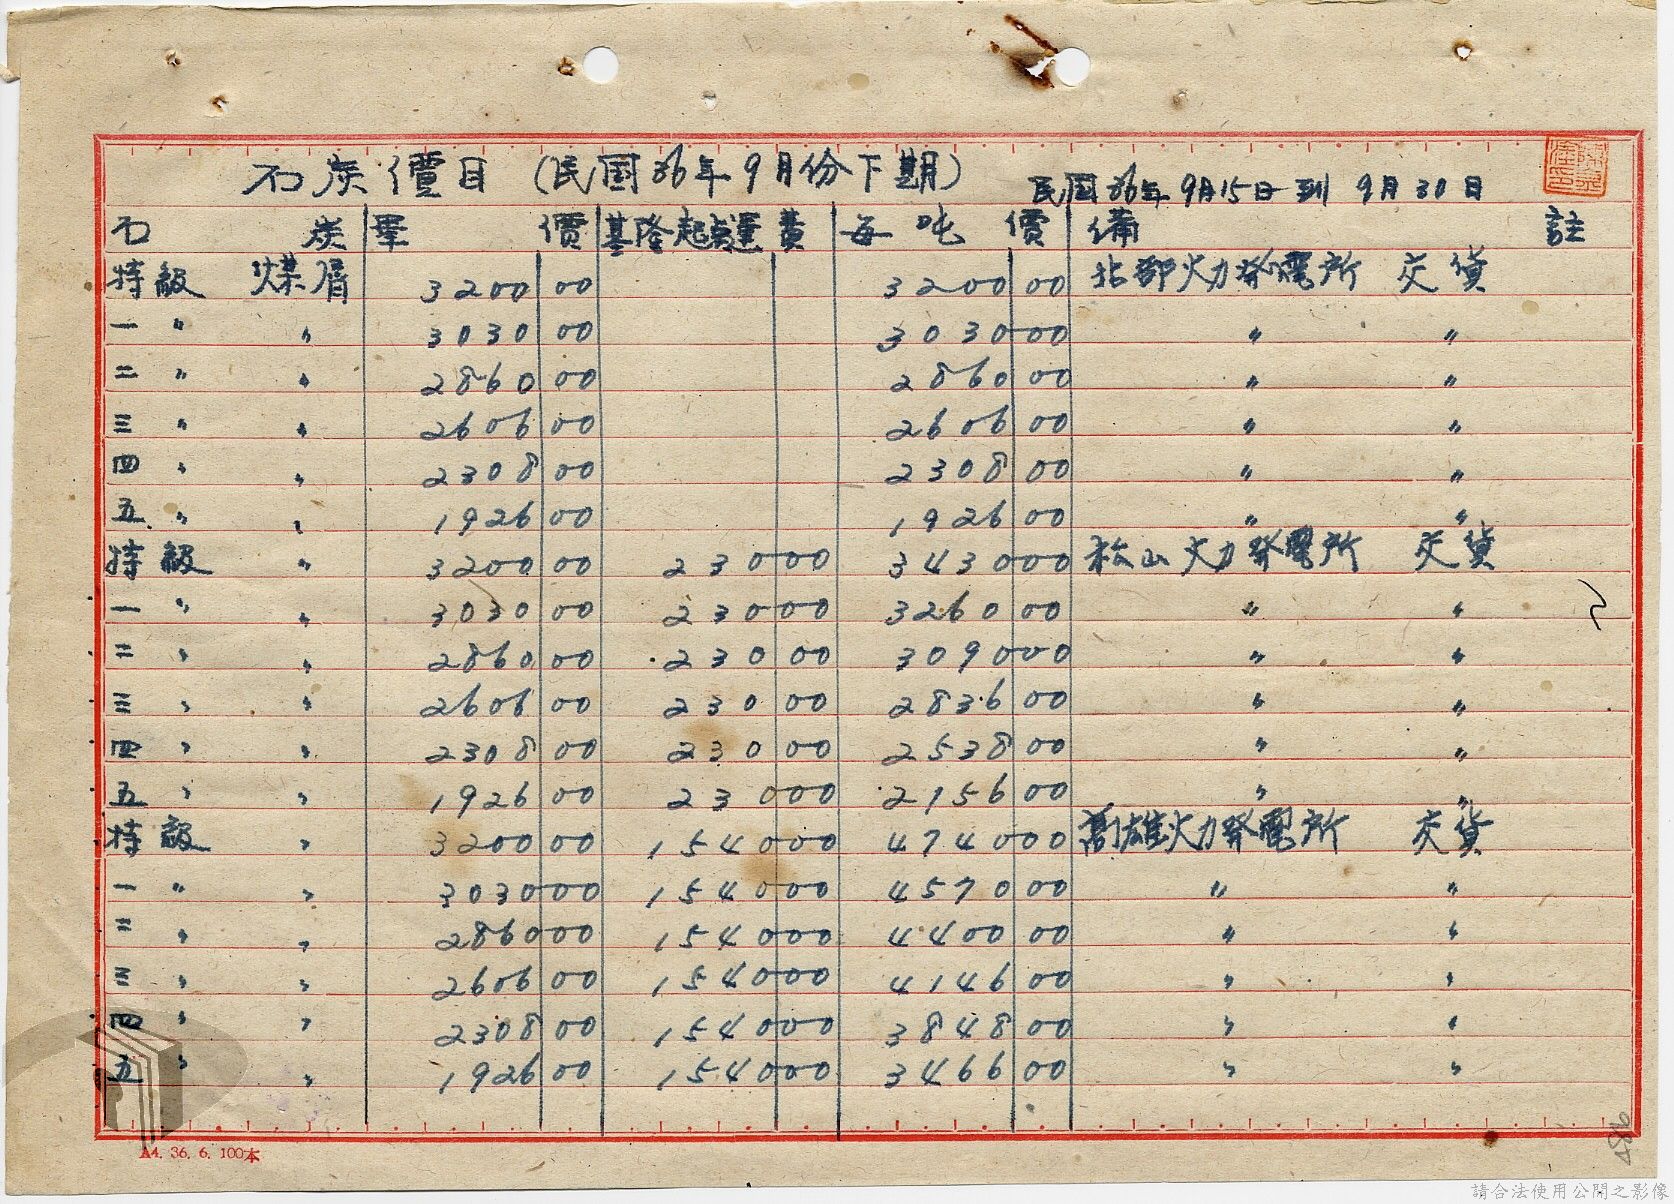 石炭價目 (民国36年9月份下期) 民国36年 9月15日 到 9月30日
石炭 單價 基隆起点運費 每吨價 備註
特級 煤屑 3200 00 3200 00 北部火力発電所 交貨
一 〃 〃 3030 00 3030 00 〃 〃
二 〃 〃 2860 00 2860 00 〃 〃
三 〃 〃 2606 00 2606 00 〃 〃
四 〃 〃 2308 00 2308 00 〃 〃
五 〃 〃 1926 00 1926 00 〃 〃
特級 〃 3200 00 230 00 3430 00 松山火力発電所 交貨
一 〃 〃 3030 00 230 00 3260 00 〃 〃
二 〃 〃 2860 00 230 00 3090 00 〃 〃
三 〃 〃 2606 00 230 00 2836 00 〃 〃
四 〃 〃 2308 00 230 00 2538 00 〃 〃
五 〃 〃 1926 00 230 00 2156 00 〃 〃
特級 〃 3200 00 1540 00 4740 00 高雄火力発電所 交貨
一 〃 〃 3030 00 1540 00 4570 00 〃 〃
二 〃 〃 2860 00 1540 00 4400 00 〃 〃
三 〃 〃 2606 00 1540 00 4146 00 〃 〃
四 〃 〃 2308 00 1540 00 3848 00 〃 〃
五 〃 〃 1926 00 1540 00 3466 00 〃 〃
A4. 36. 6. 100本
請合法使用公開之影像